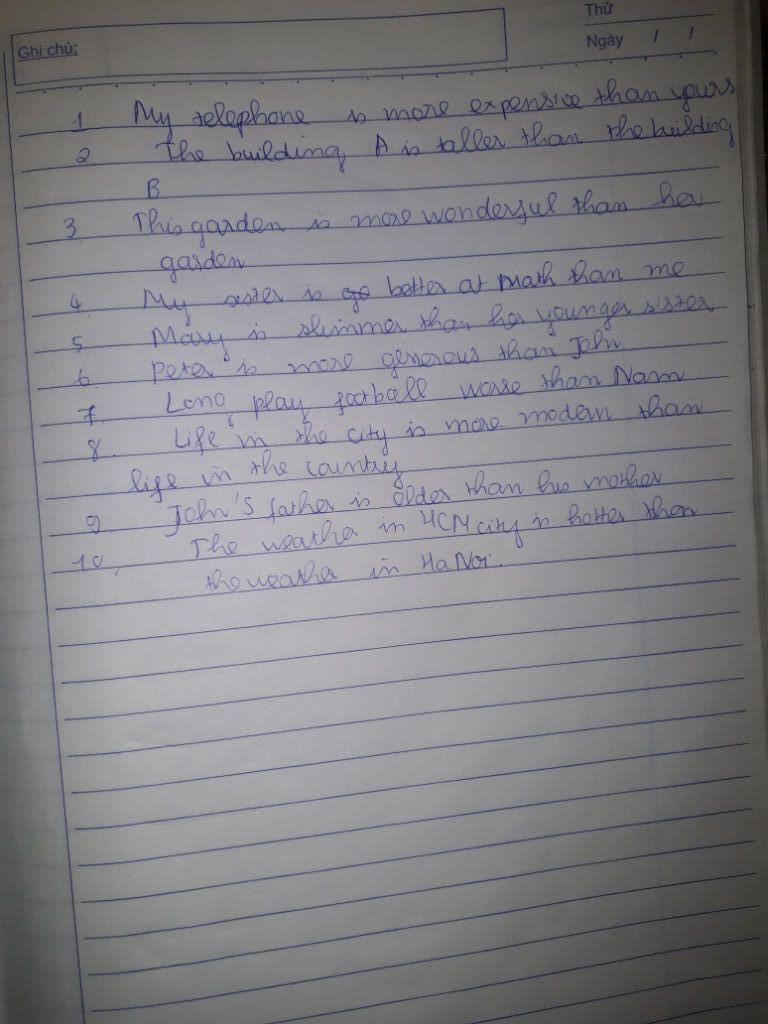 Ghi chú:
Thứ
Ngày / /
1 My telephone is more expensive than yours
2 The building A is taller than the building
B
3 This garden is more wonderful than her
garden
4 My sister is go better at math than me
5 Mary is slimmer than her younger sister
6 Peter is more generous than John
7 Long play football worse than Nam
8 Life in the city is more modern than
life in the country
9 John's father is older than his mother
10, The weather in HCM city is hotter than
the weather in Ha Noi.